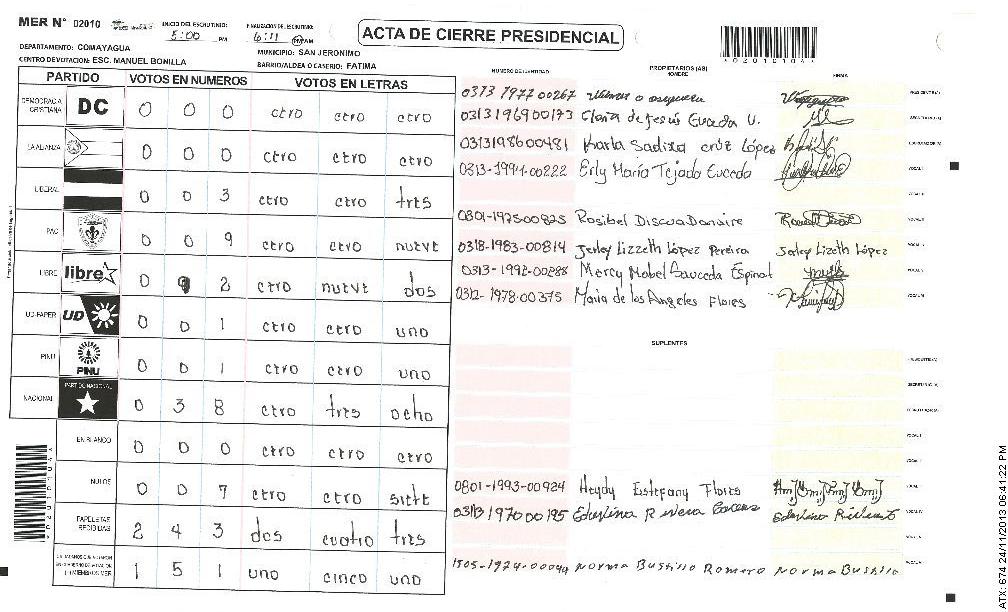 MER N° 02010
INICIO DEL ESCRUTINIO: 5:00 PM
FINALIZACION DEL ESCRUTINIO: 6:11 PM AM
ACTA DE CIERRE PRESIDENCIAL
DEPARTAMENTO: COMAYAGUA
MUNICIPIO: SAN JERONIMO
CENTRO DE VOTACION: ESC. MANUEL BONILLA
BARRIO/ALDEA O CASERIO: FATIMA
PARTIDO VOTOS EN NUMEROS VOTOS EN LETRAS
NUMERO DE IDENTIDAD PROPIETARIOS (AS) NOMBRE FIRMA
DEMOCRACIA CRISTIANA DC 0 0 0 cero cero cero
LA ALIANZA 0 0 0 cero cero cero
LIBERAL 0 0 3 cero cero tres
PAC 0 0 9 cero cero nueve
LIBRE libre 0 9 2 cero nueve dos
UD-FAPER UD 0 0 1 cero cero uno
PINU PINU 0 0 1 cero cero uno
NACIONAL PARTIDO NACIONAL 0 3 8 cero tres ocho
EN BLANCO 0 0 0 cero cero cero
NULOS 0 0 7 cero cero siete
PAPELETAS RECIBIDAS 2 4 3 dos cuatro tres
1 5 1 uno cinco uno
0313 1977 00267
0313 1969 00173 Gloria de Jesús Euceda U.
0313 1986 00481 Karla Sadixa cruz López
0313-1994-00222 Erly María Tejada Euceda
0801-1975-00825 Rosibel Discua Danaire
0318-1983-00814 Jerley Lizzeth López Pereira Jerley Lizeth López
0313-1992-00288 Mercy Mabel Sauceda Espinal
0312-1978-00375 Maria de los Angeles Flores
SUPLENTES
0801-1993-00924 Heydy Estefany Flores
0313 1970 00195 Edvelina Rivera
1505-1974-00044 Norma Bustillo Romero Norma Bustillo
ATX: 674 24/11/2013 06:41:22 PM